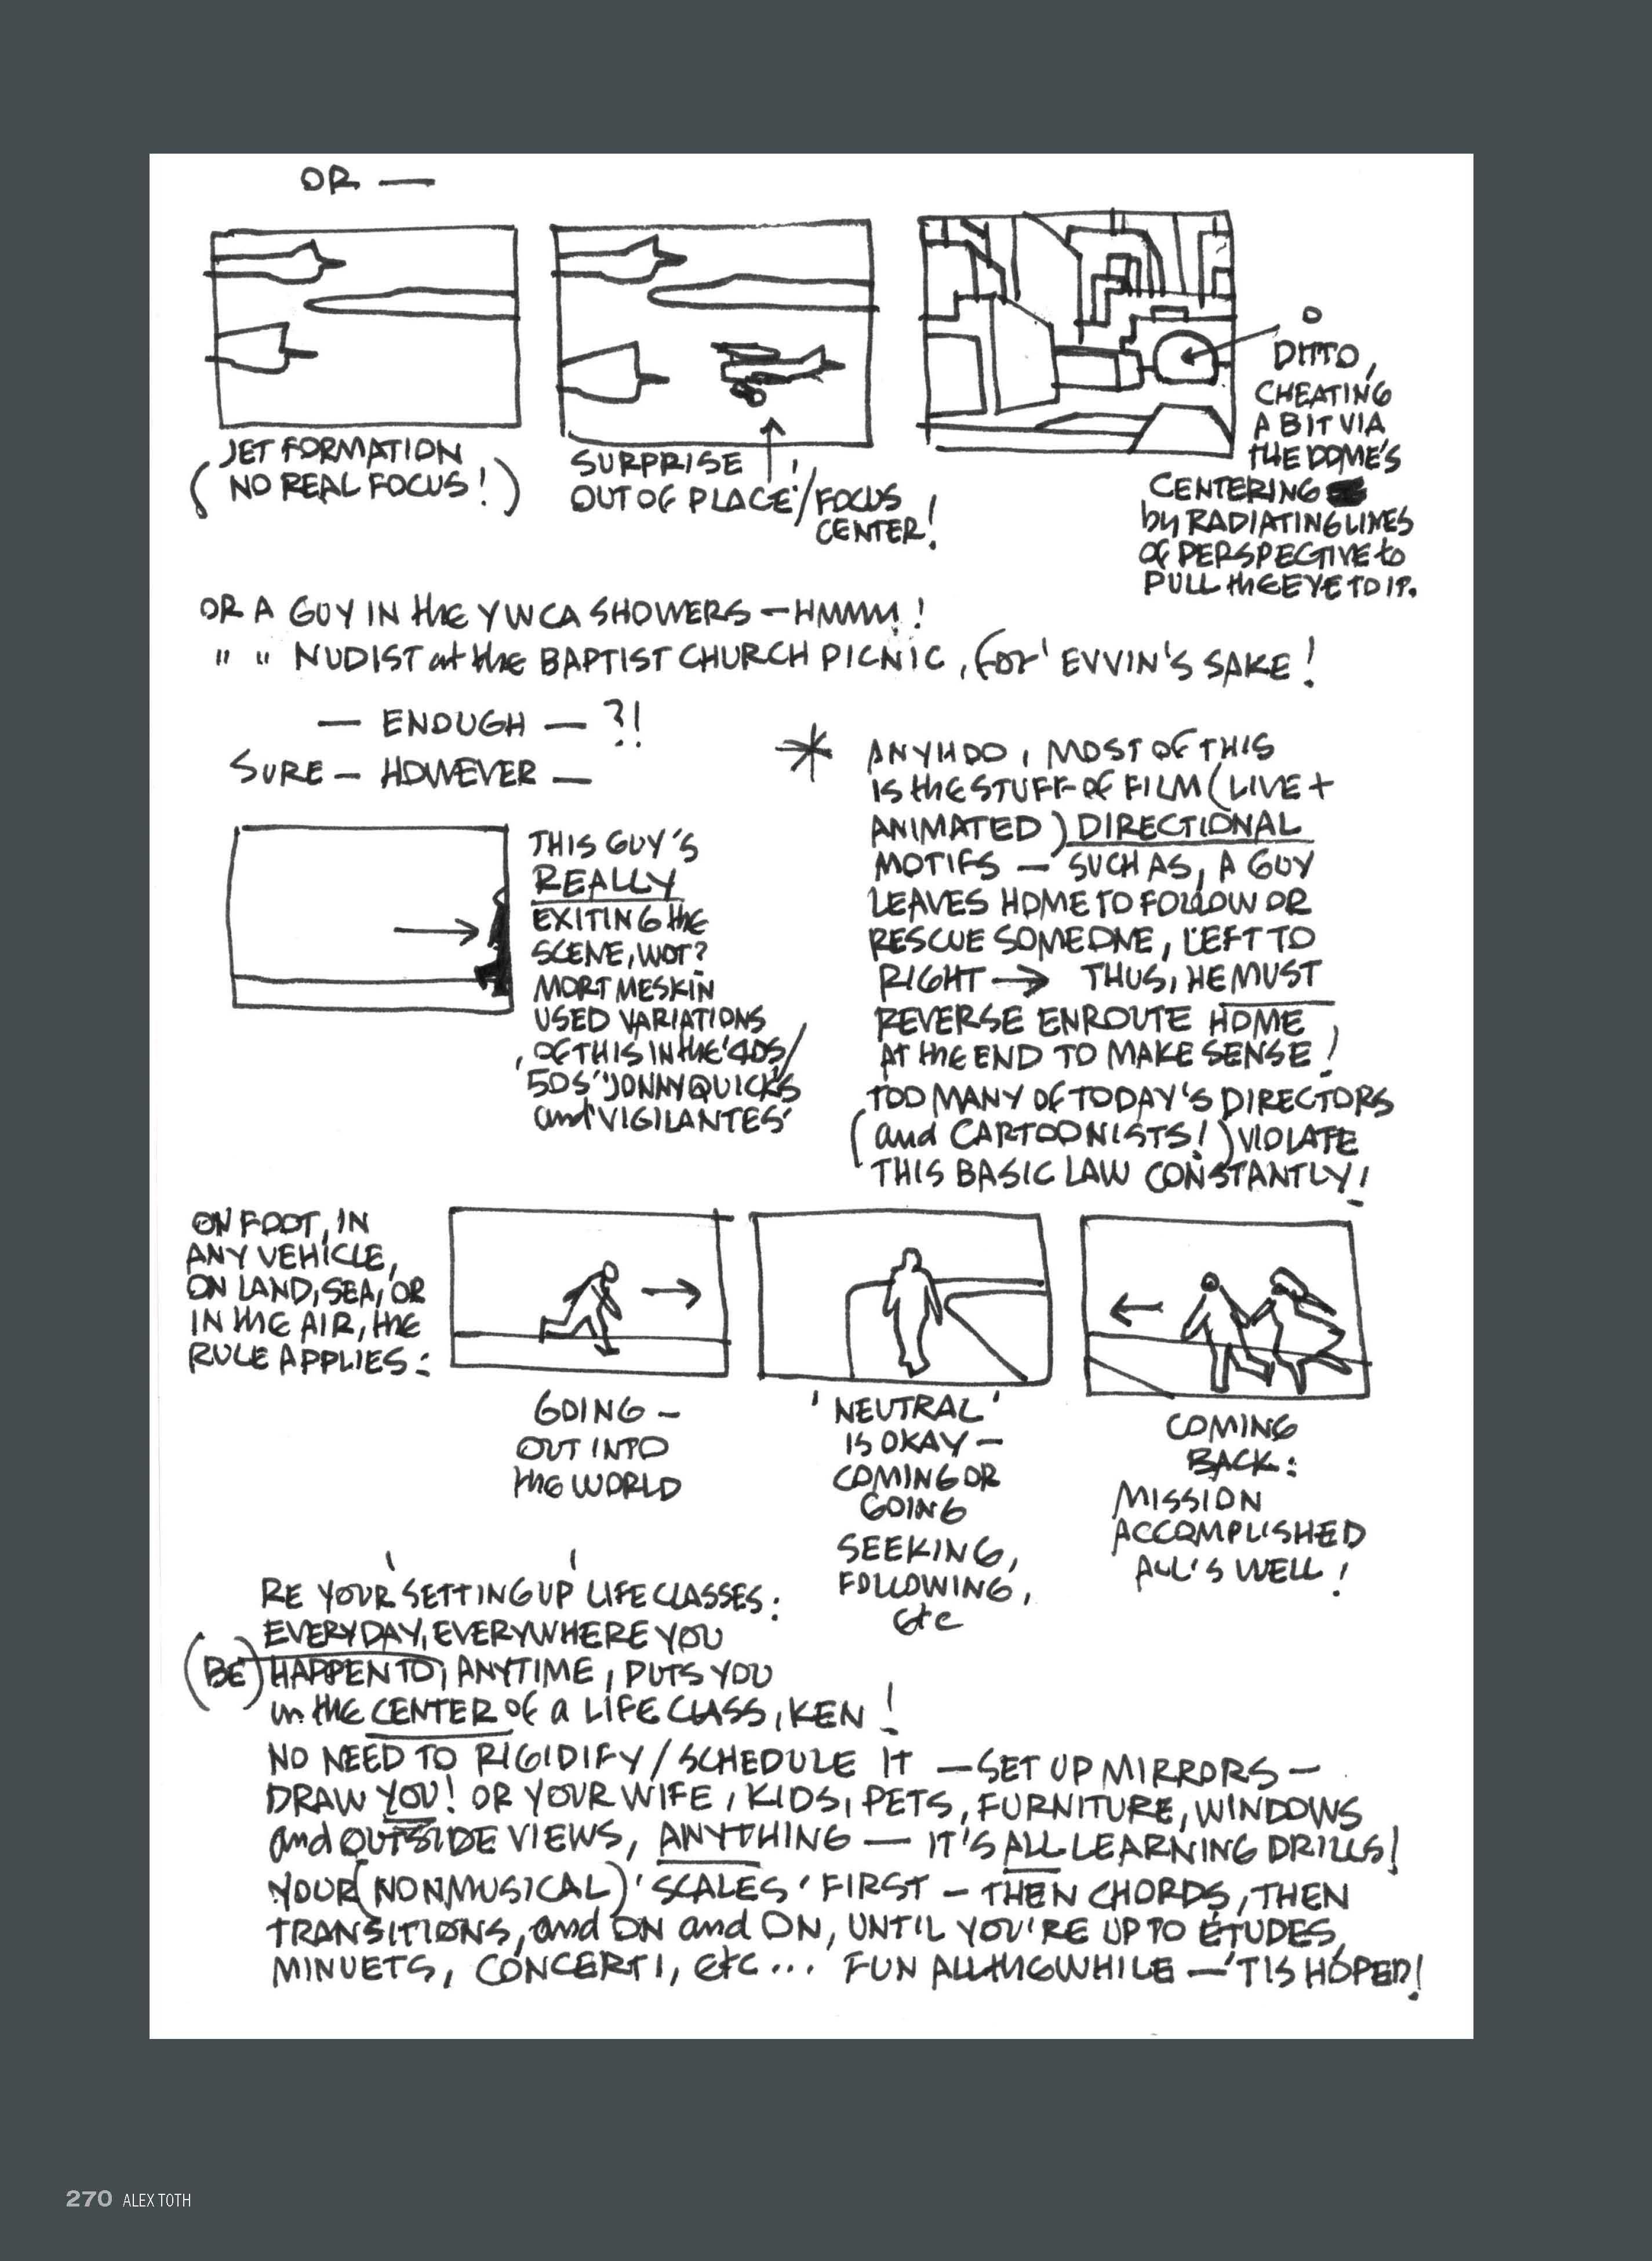 OR —
JET FORMATION
(NO REAL FOCUS!)
SURPRISE!
OUT OF PLACE/FOCUS
CENTER!
DITTO,
CHEATING
A BIT VIA
the DOME'S
CENTERING
by RADIATING LINES
OF PERSPECTIVE to
PULL the EYE TO IT.
OR A GUY IN the YWCA SHOWERS — HMMM!
" " NUDIST at the BAPTIST CHURCH PICNIC, for 'EVVIN'S SAKE!
— ENOUGH — ?!
SURE — HOWEVER —
THIS GUY'S
REALLY
EXITING the
SCENE, WOT?
MORT MESKIN
USED VARIATIONS
OF THIS IN the '40S/
50S' 'JONNY QUICKS
and VIGILANTES'
* ANYHOO, MOST OF THIS
IS the STUFF OF FILM (LIVE +
ANIMATED) DIRECTIONAL
MOTIFS — SUCH AS, A GUY
LEAVES HOME TO FOLLOW OR
RESCUE SOMEONE, LEFT TO
RIGHT → THUS, HE MUST
REVERSE ENROUTE HOME,
AT the END TO MAKE SENSE!
TOO MANY OF TODAY'S DIRECTORS
(and CARTOONISTS!) VIOLATE
THIS BASIC LAW CONSTANTLY!
ON FOOT, IN
ANY VEHICLE,
ON LAND, SEA, OR
IN the AIR, the
RULE APPLIES:
GOING —
OUT INTO
the WORLD
'NEUTRAL'
IS OKAY —
COMING OR
GOING
SEEKING,
FOLLOWING,
etc
COMING
BACK:
MISSION
ACCOMPLISHED
ALL'S WELL!
RE YOUR 'SETTING UP' LIFE CLASSES:
EVERYDAY, EVERYWHERE YOU
(BE) HAPPEN TO, ANYTIME, PUTS YOU
in the CENTER of a LIFE CLASS, KEN!
NO NEED TO RIGIDIFY/SCHEDULE IT — SET UP MIRRORS —
DRAW YOU! OR YOUR WIFE, KIDS, PETS, FURNITURE, WINDOWS
and OUTSIDE VIEWS, ANYTHING — IT'S ALL LEARNING DRILLS!
YOUR (NONMUSICAL) 'SCALES' FIRST — THEN CHORDS, THEN
TRANSITIONS, and ON and ON, UNTIL YOU'RE UP TO ÉTUDES,
MINUETS, CONCERTI, etc... FUN ALL THE WHILE — 'TIS HOPED!
270 ALEX TOTH